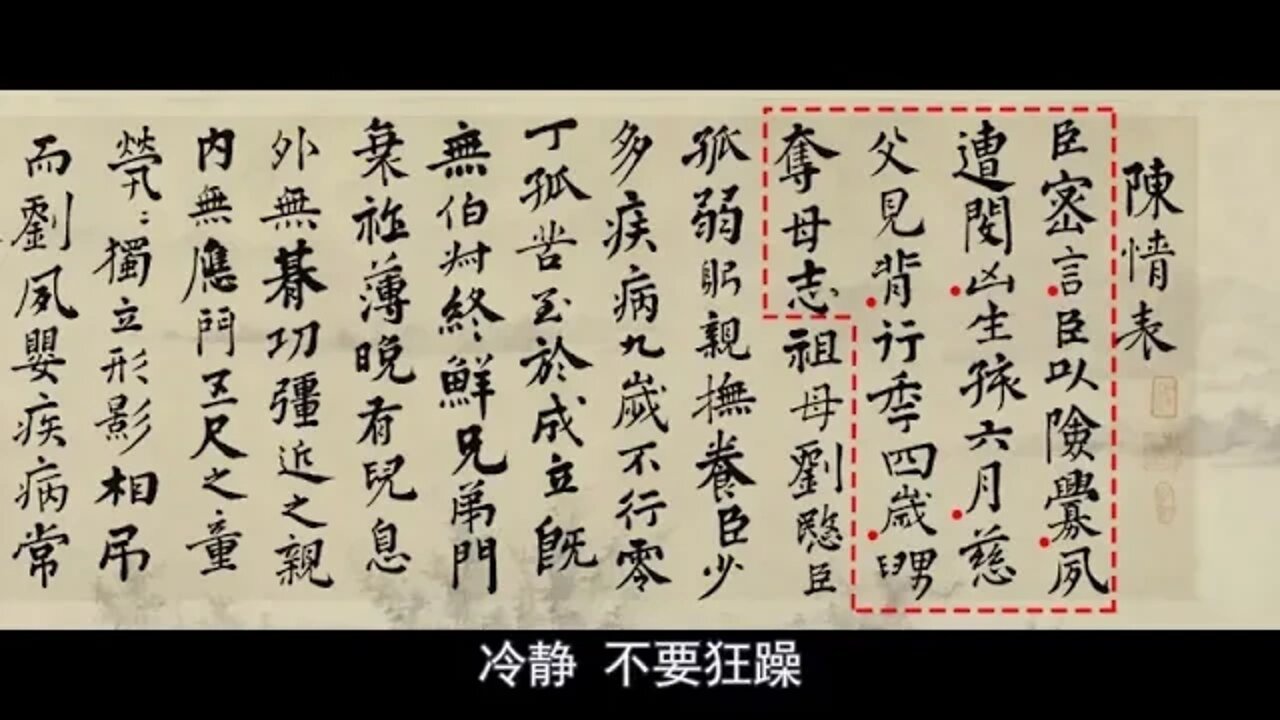 陳情表
臣密言臣以險釁夙
遭閔凶生孩六月慈
父見背行季四歲舅
奪母志祖母劉愍臣
孤弱躬親撫養臣少
多疾病九歲不行零
丁孤苦至於成立既
無伯叔終鮮兄弟門
衰祚薄晚有兒息
外無朞功彊近之親
內無應門五尺之童
煢煢獨立形影相吊
而劉夙嬰疾病常
冷静 不要狂躁